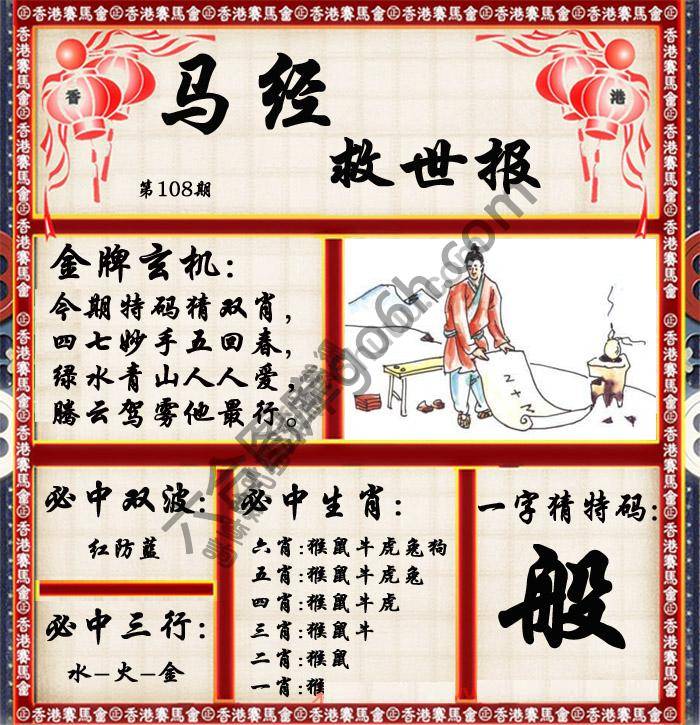 香港賽馬會㊣香港賽馬會㊣香港賽馬會㊣香港賽馬會㊣香港賽馬會㊣香港賽馬會㊣香港賽馬會
香
港
马经
救世报
第108期
金牌玄机:
今期特码猜双肖,
四七妙手五回春,
绿水青山人人爱,
腾云驾雾他最行。
2+2
必中双波:
红防藍
必中三行:
水–火–金
必中生肖:
六肖:猴鼠牛虎兔狗
五肖:猴鼠牛虎兔
四肖:猴鼠牛虎
三肖:猴鼠牛
二肖:猴鼠
一肖:猴
一字猜特码:
般